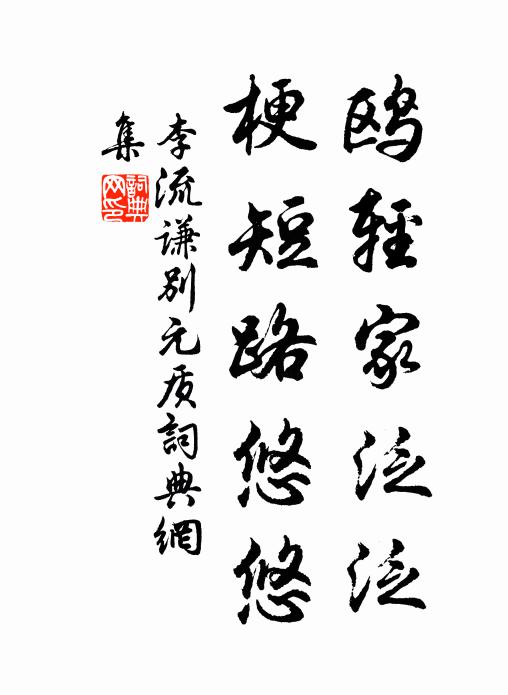 鸥輕家泛泛
梗短路悠悠
李流谦别元质詞典網
集
詞典
网印